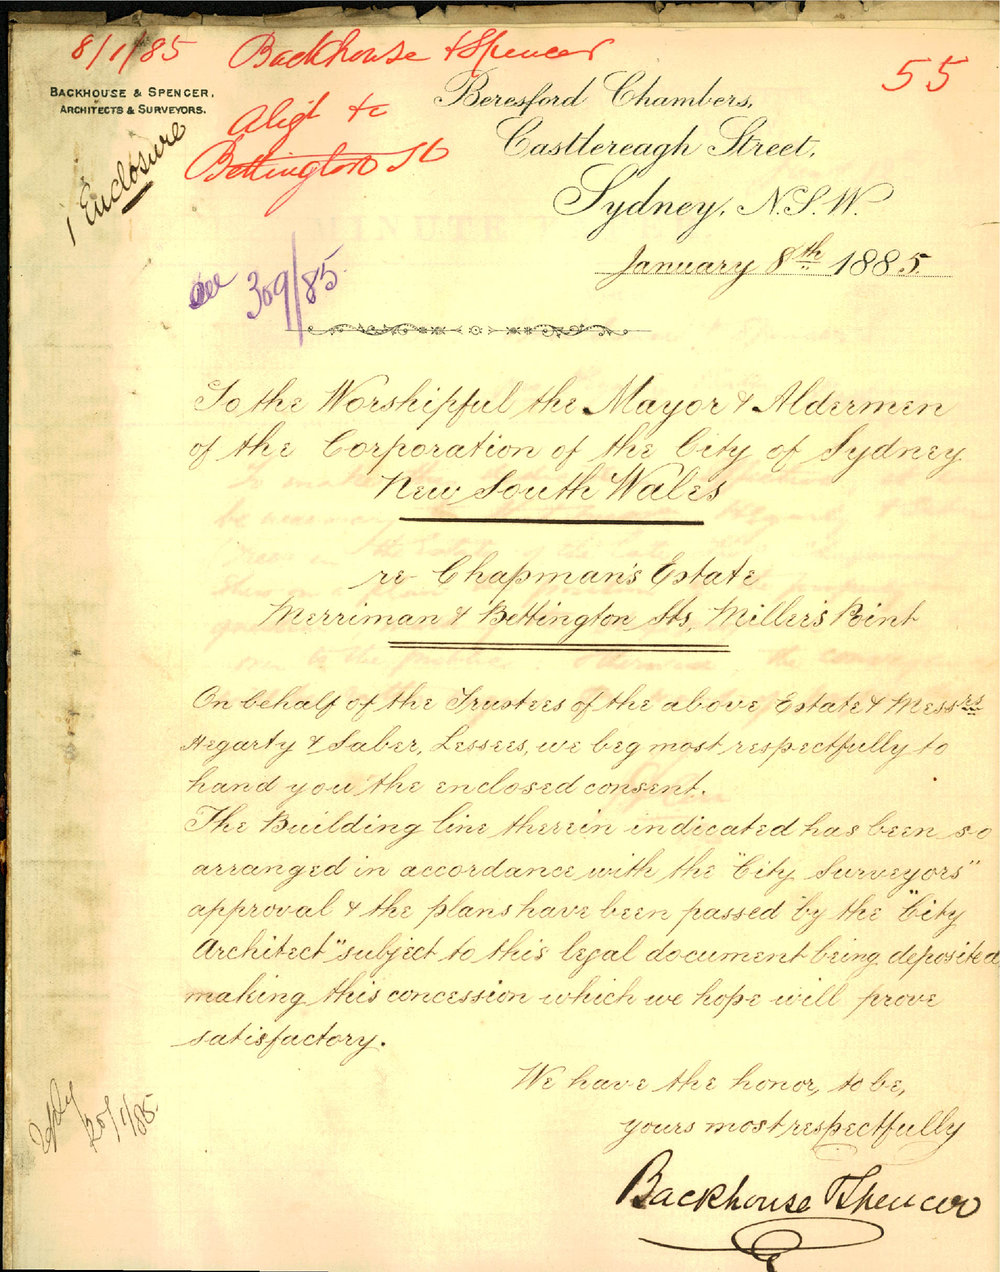 8/1/85 Backhouse & Spencer
55
BACKHOUSE & SPENCER,
ARCHITECTS & SURVEYORS.
Align &c
Bettington St
1 Enclosure
Beresford Chambers,
Castlereagh Street,
Sydney, N.S.W.
January 8th 1885.
see 309/85
MINUTE
To the Worshipful the Mayor & Aldermen
of the Corporation of the City of Sydney
New South Wales
re Chapman's Estate
Merriman & Bettington Sts, Miller's Point
On behalf of the Trustees of the above Estate & Messrs
Hegarty & Saber, Lessees, we beg most respectfully to
hand you the enclosed consent.
The Building line therein indicated has been so
arranged in accordance with the "City Surveyors"
approval & the plans have been passed by the "City
Architect" subject to this legal document being deposited
making this concession which we hope will prove
satisfactory.
We have the honor, to be,
yours most respectfully
Backhouse & Spencer
20/1/85